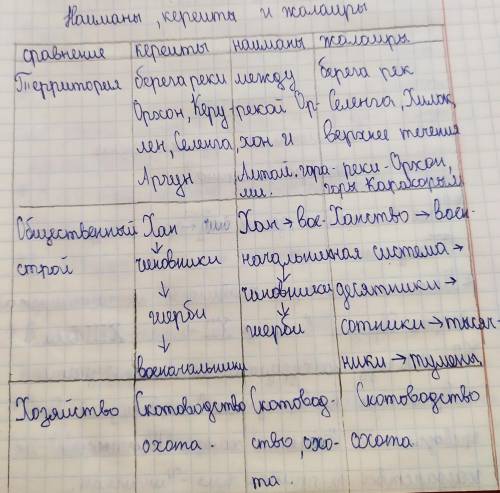 Найманы, кереиты и жалаиры
сравнение кереиты найманы жалаиры
Территория
берега реки
Орхон, Керу-
лен, Селенга,
Аргун
между
рекой Ор-
хон и
Алтай. гора-
ми.
берега рек
Селенга, Хилок,
верхнее течения
реки-Орхон,
горы Каракорым
Общественный
строй
Хан
↓
чиновники
↓
шерби
↓
военачальники
Хан → вое-
начальники
↓
чиновники
↓
шерби
Ханство → воен-
ная система →
десятники →
сотники → тысяч-
ники → тумены
Хозяйство
Скотоводство
охота.
Скотовод-
ство, охо-
та.
Скотоводство
охота